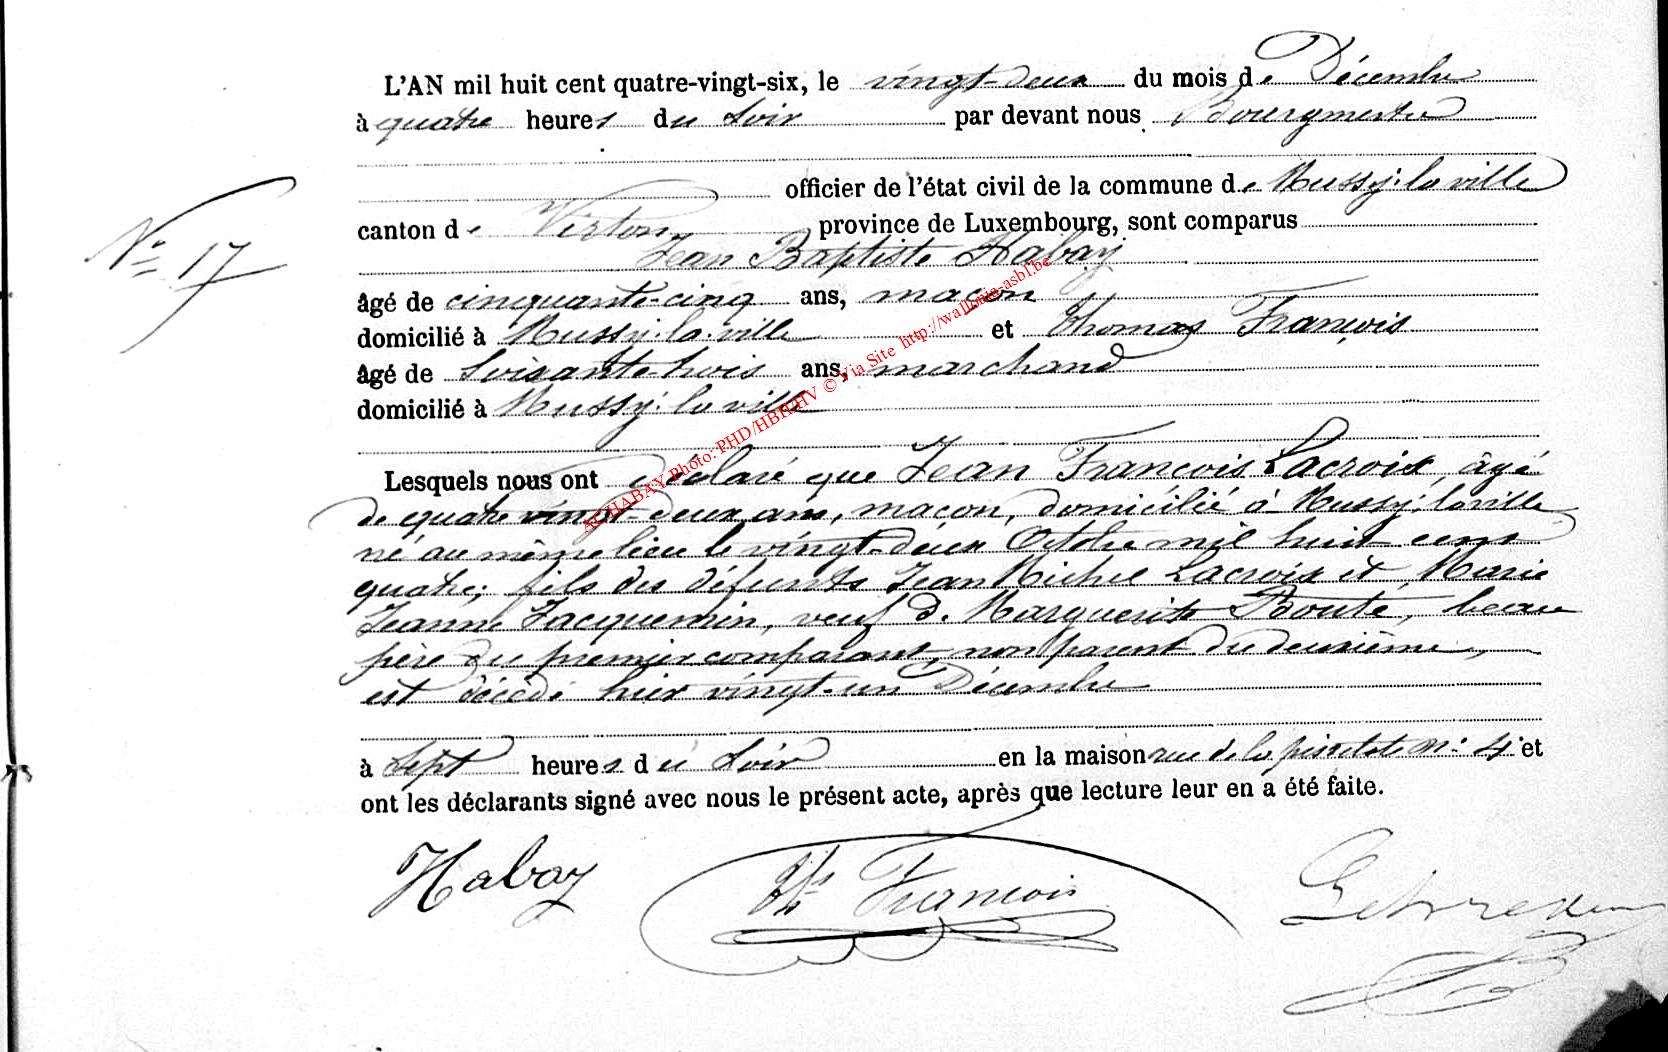 L'AN mil huit cent quatre-vingt-six, le vingt-deux du mois de Décembre
à quatre heures du soir par devant nous Bourgmestre
officier de l'état civil de la commune de Mussy-la-ville
canton de Virton province de Luxembourg, sont comparus
N° 17
Jean Baptiste Habay
âgé de cinquante-cinq ans, maçon
domicilié à Mussy-la-ville et Thomas François
âgé de soixante-trois ans, marchand
domicilié à Mussy-la-ville
ACHABAY Photo: PHD/HBH/HV © Via Site http://wallonia-asbl.be
Lesquels nous ont déclaré que Jean François Lacroix, âgé
de quatre vingt-deux ans, maçon, domicilié à Mussy-la ville
né au même lieu le vingt-deux Octobre mil huit cent
quatre; fils des défunts Jean Michel Lacroix et Marie
Jeanne Jacquemin, veuf de Marguerite Bouté, beau
père du premier comparant, non parent du deuxième,
est décédé hier vingt-un Décembre
à sept heures du soir en la maison rue de la n° 4 et
ont les déclarants signé avec nous le présent acte, après que lecture leur en a été faite.
Habay
Th François